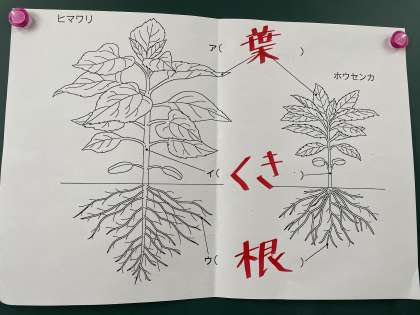 ヒマワリ
ア( 葉 )
ホウセンカ
イ( くき )
ウ( 根 )